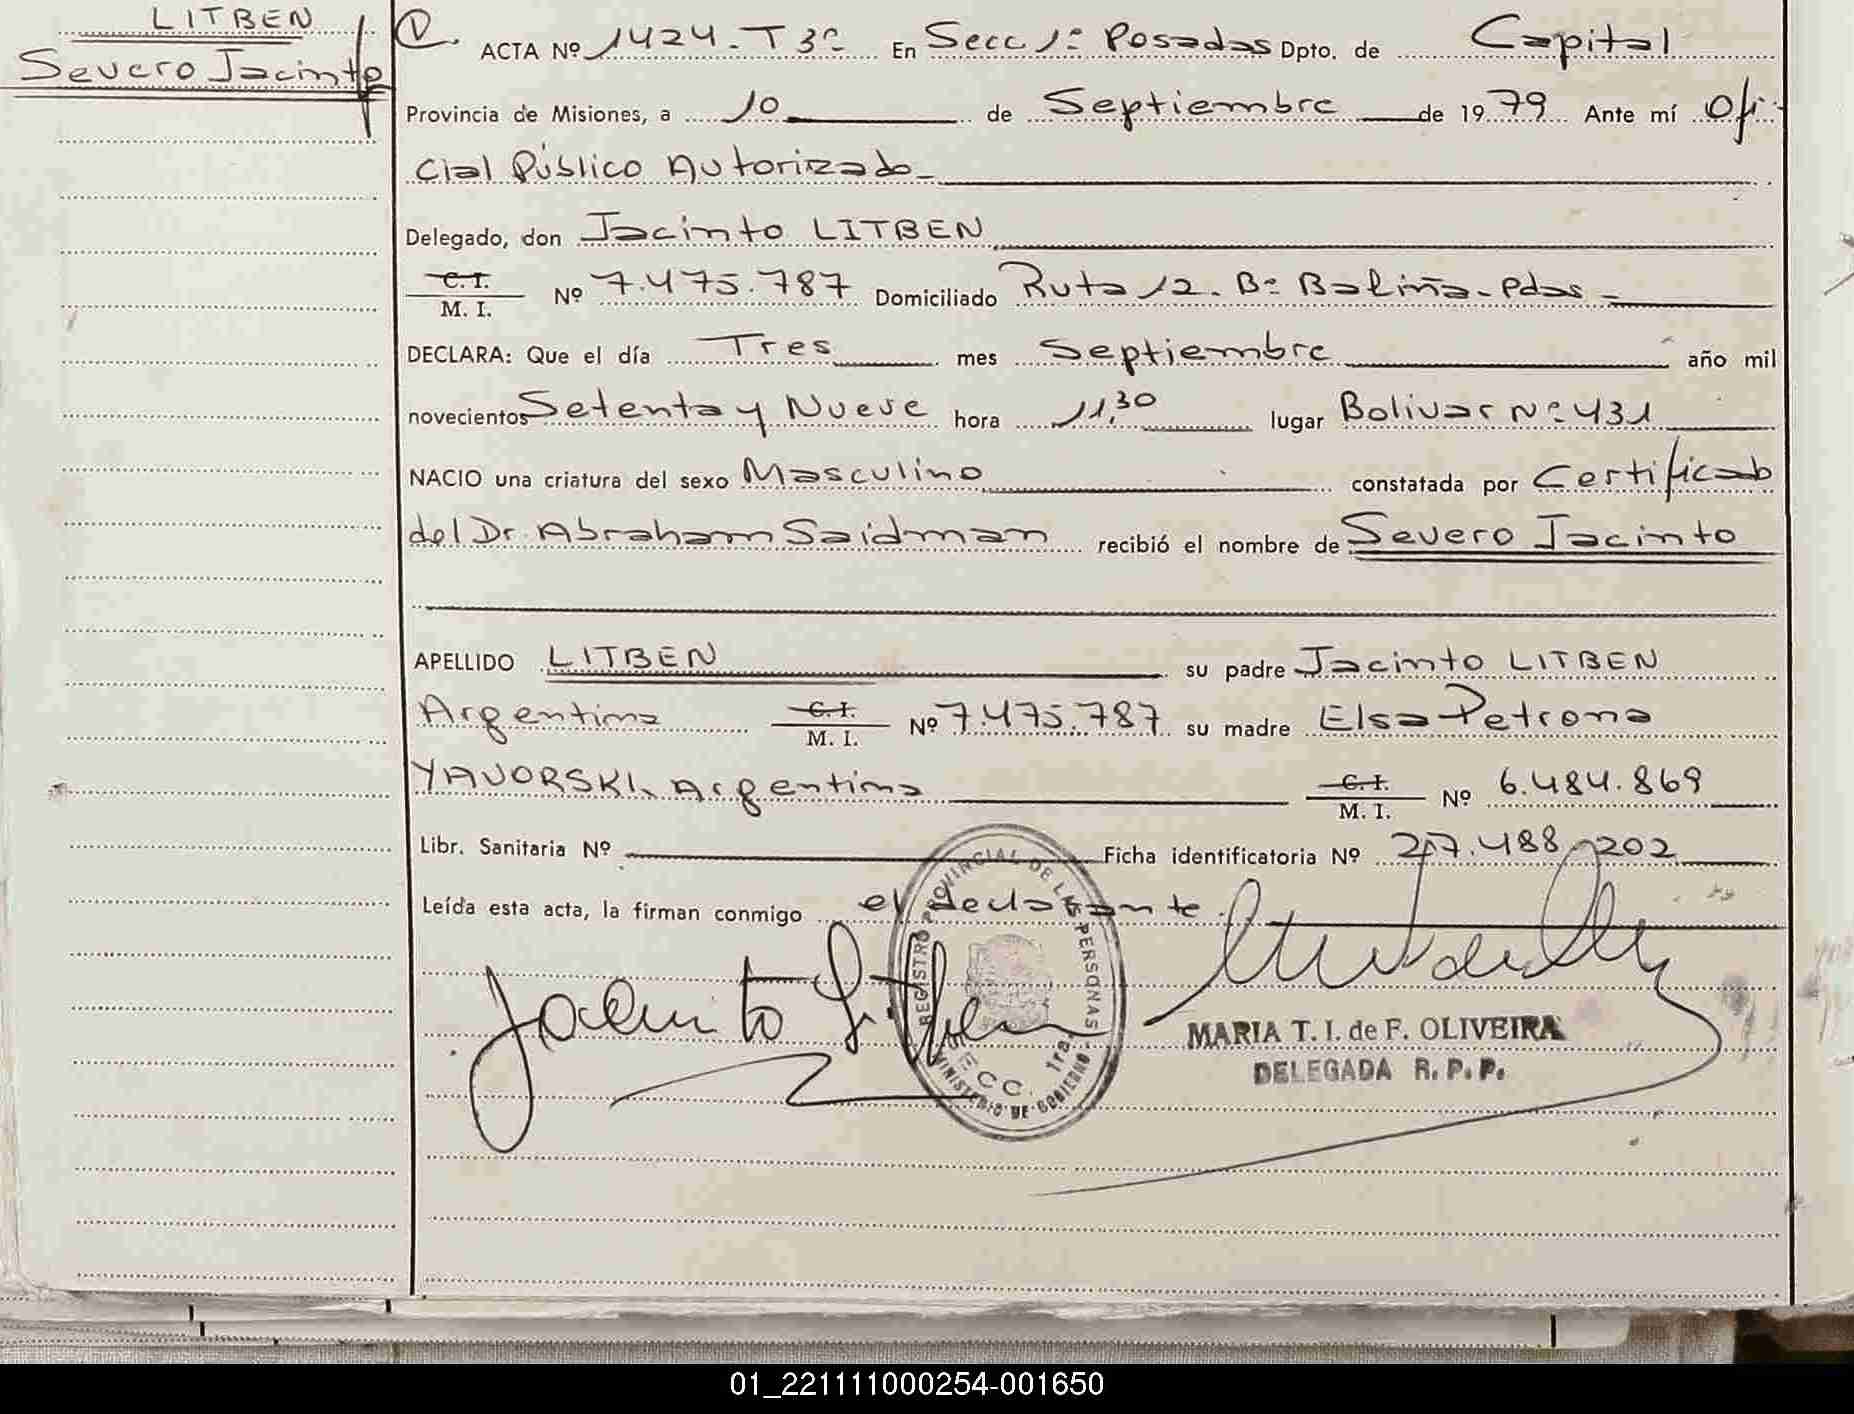 LITBEN
Severo Jacinto
V. ACTA Nº 1424-T 3º En Secc 1º Posadas Dpto. de Capital
Provincia de Misiones, a 10 de Septiembre de 1979 Ante mí Ofi
cial Público Autorizado
Delegado, don Jacinto LITBEN
C. I. / M. I. Nº 7.475.787 Domiciliado Ruta 12. Bº Baliña - Pdas -
DECLARA: Que el día Tres mes Septiembre año mil
novecientos Setenta y Nueve hora 11,30 lugar Bolivar Nº 431
NACIO una criatura del sexo Masculino constatada por Certificado
del Dr. Abraham Saidman recibió el nombre de Severo Jacinto
APELLIDO LITBEN su padre Jacinto LITBEN
Argentina C. I. / M. I. Nº 7.475.787 su madre Elsa Petrona
YAVORSKI, Argentina C. I. / M. I. Nº 6.484.869
Libr. Sanitaria Nº Ficha identificatoria Nº 27.488.202
Leída esta acta, la firman conmigo el declarante.
Jacinto Litben
REGISTRO PROVINCIAL DE LAS PERSONAS
SECC. 1ra.
MINISTERIO DE GOBIERNO
MARIA T. I. de F. OLIVEIRA
DELEGADA R. P. P.
01_221111000254-001650